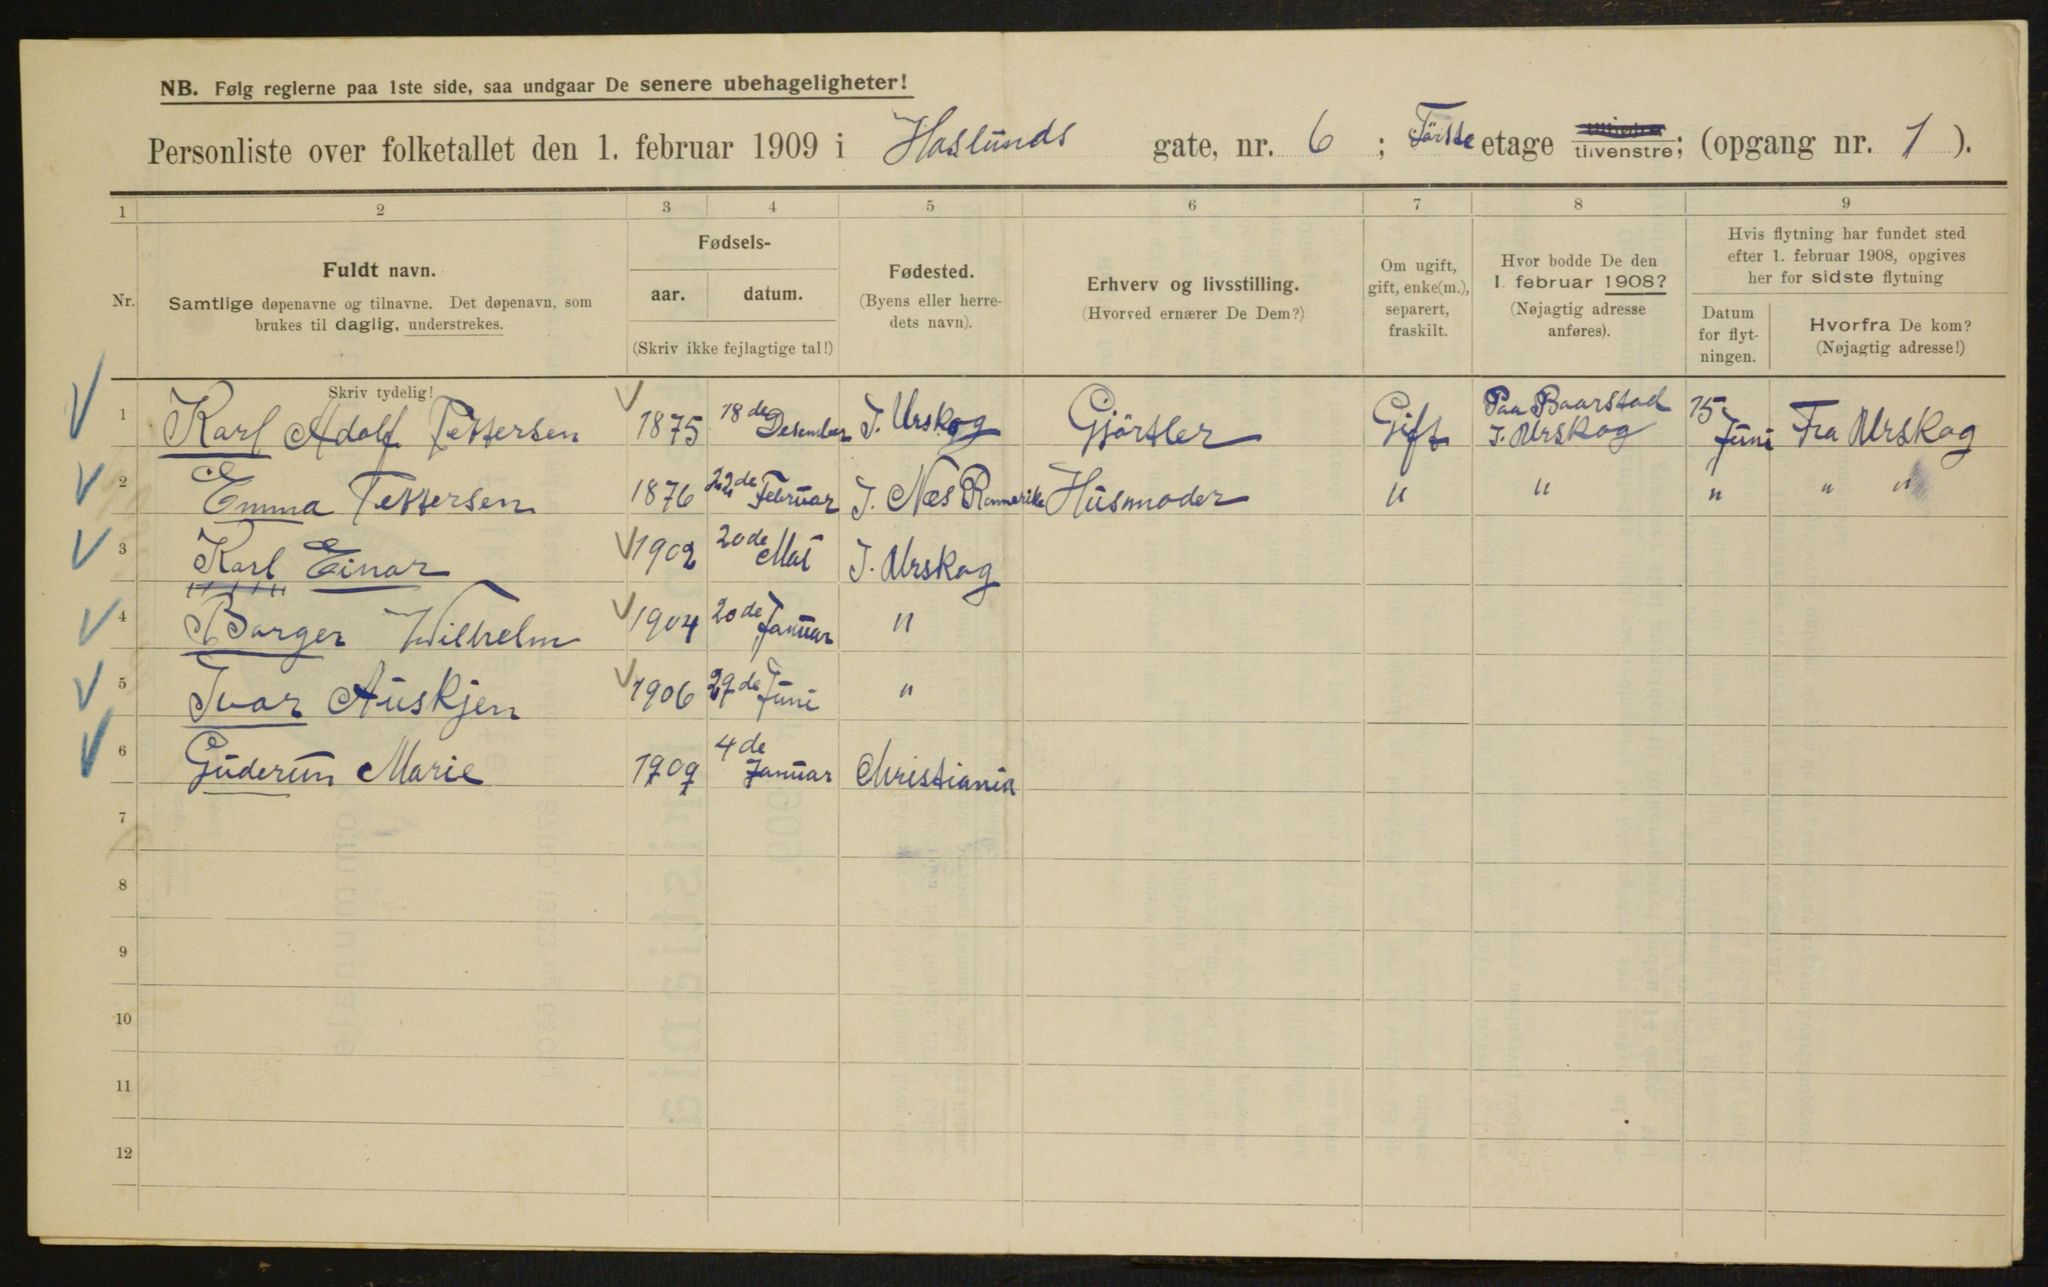 NB. Følg reglerne paa 1ste side, saa undgaar De senere ubehageligheter!
Personliste over folketallet den 1. februar 1909 i Haslunds gate, nr. 6 ; Förste etage tilvenstre; (opgang nr. 1 ).
1 2 3 4 5 6 7 8 9
Nr.
Fuldt navn.
Samtlige døpenavne og tilnavne. Det døpenavn, som
brukes til daglig, understrekes.
Skriv tydelig!
Fødsels-
aar. datum.
(Skriv ikke fejlagtige tal!)
Fødested.
(Byens eller herre-
dets navn).
Erhverv og livsstilling.
(Hvorved ernærer De Dem?)
Om ugift,
gift, enke(m.),
separert,
fraskilt.
Hvor bodde De den
1. februar 1908?
(Nøjagtig adresse
anføres).
Hvis flytning har fundet sted
efter 1. februar 1908, opgives
her for sidste flytning
Datum
for flyt-
ningen.
Hvorfra De kom?
(Nøjagtig adresse!)
1 Karl Adolf Pettersen 1875 18de Desember I. Urskog Gjörtler Gift Paa Baarstad I. Urskog 15 Juni Fra Urskog
2 Emma Pettersen 1876 22de Februar I. Næs Romerike Husmoder " " " " "
3 Karl Einar 1902 20de Mai I. Urskog
4 Borger Wilhelm 1904 20de Januar "
5 Ivar Auskjen 1906 29de Juni "
6 Guderun Marie 1909 4de Januar Christiania
7
8
9
10
11
12